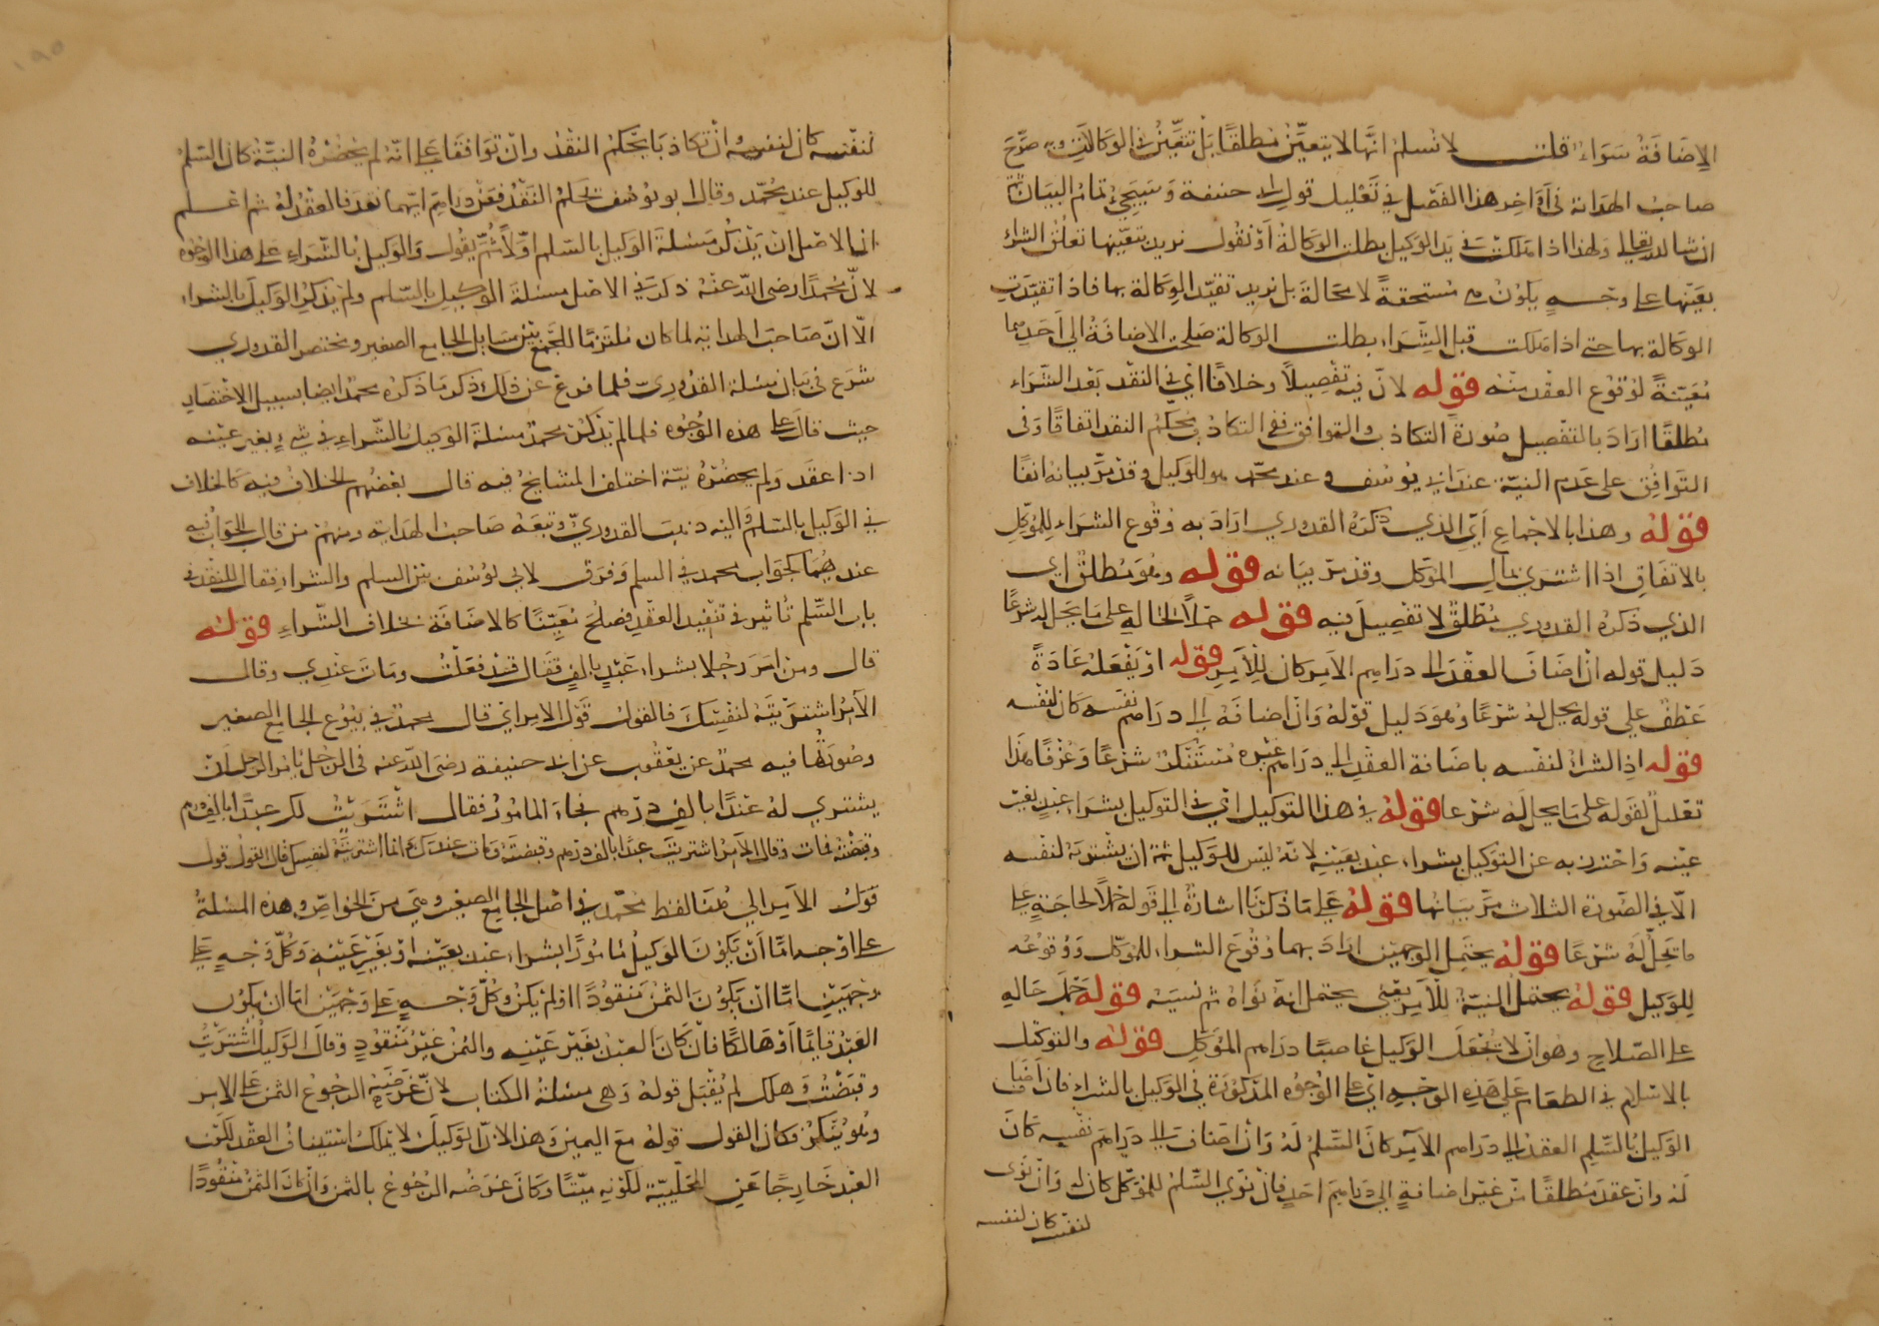 الاضافة سواء قلت لا نسلم انها لا يتعين مطلقا بل تتعين في الوكالات وبه صرح
صاحب الهداية في آواخر هذا الفصل في تعليل قول ابي حنيفة وسيجئ تمام البيان ثمة
ان شا الله تعالى ولهذا اذا هلكت في يد الوكيل بطلت الوكالة او نقول نريد بتعينها تعلق الشراء
بعينها على وجه يكون مستحقة لا محالة بل نريد تقيد الوكالة بها فاذا تقيدت
الوكالة بها حتى اذا هلكت قبل الشراء بطلت الوكالة صلحت الاضافة الي احديهما
معينة لوقوع العقد منه قوله لان فيه تفصيلا وخلافا اي في النقد بعد الشراء
مطلقا اراد بالتفصيل صورة التكاذب والتوافق ففي التكاذب يحكم النقد اتفاقا وفي
التوافق على عدم النية عند ابي يوسف وعند محمد هو للوكيل وقد مر بيانه انفا
قوله وهذا بالاجماع اي الذي ذكره القدوري اراد به وقوع الشراء للموكل
بالاتفاق اذا اشترى بمال الموكل وقد مر بيانه قوله وهو مطلق اي
الذي ذكره القدوري مطلق لا تفصيل فيه قوله حملا لحاله على ما يحل له شرعا
دليل قوله ان اضاف العقد الى دراهم الامر كان للآمر قوله او يفعله عادة
عطف على قوله يحل له شرعا وهو دليل قوله وان اضافه الى دراهم نفسه كان لنفسه
قوله اذ الشراء لنفسه باضافة العقد الى دراهم غيره مستنكر شرعا وعرفا هذا
تعليل لقوله على ما يحل له شرعا قوله في هذا التوكيل اي في التوكيل بشراء عبد بغير
عينه واحترز به عن التوكيل بشراء عبد بعينه لانه ليس للوكيل ثمة ان يشتريه لنفسه
الا في الصورة الثلاث مر بيانها قوله على ما ذكرنا اشارة الى قوله حملا لحاجته على
ما يحل له شرعا قوله يحتمل الوجهين اراد بهما وقوع الشراء للموكل ووقوعه
للوكيل قوله يحتمل النية للآمر يعني يحتمل انه نواه ثم نسيه قوله حمل حاله
على الصلاح وهو ان لا يجعل الوكيل غاصبا دراهم الموكل قوله والتوكيل
بالاسلام في الطعام على هذه الوجه اي على الوجوه المذكورة في الوكيل بالشراء فان اضاف
الوكيل بالسلم العقد الى دراهم الآمر كان السلم له وان اضاف الى دراهم نفسه كان
له وان عقد مطلقا من غير اضافة الى دراهم احد فان نوى السلم للموكل كان له وان نوى
لنفسه كان لنفسه
لنفسه كان لنفسه ان تكاذبا يحكم النقد وان توافقا على انه لم يحضره النية كان السلم
للوكيل عند محمد وقال ابو يوسف يحكم النقد فعن دراهم ايهما نقد فالعقد له ثم اعلم
ان الاصل ان يذكر مسئلة الوكيل بالسلم اولا ثم يقول والوكيل بالشراء على هذا الوجوه
لان محمدا رضي الله عنه ذكر في الاصل مسئلة الوكيل بالسلم ولم يذكر الوكيل بالشراء
الا ان صاحب الهداية لما كان ملتزما للجمع بين مسايل الجامع الصغير ومختصر القدوري
شرع في بيان مسئلة القدوري فلما فرغ عن ذلك ذكر ما ذكره محمد ايضا بسبيل الاختصار
حيث قال على هذه الوجوه فلما لم يذكر محمد مسئلة الوكيل بالشراء في شيء بغير عينه
اذا عقد ولم يحضره نية اختلف المشايخ فيه قال بعضهم الخلاف فيه كالخلاف
في الوكيل بالسلم واليه ذهب القدوري وتبعه صاحب الهداية ومنهم من قال الجواب فيه
عندهما كجواب محمد في السلم وفرق لابي يوسف بين السلم والشراء فقال للنقد في
باب السلم تأثير في تنفيد العقد فصلح معينا كالاضافة بخلاف الشراء قوله
قال ومن امر رجلا بشراء عبد بالف فقال قد فعلت ومات عندي وقال
الآمر اشتريته لنفسك فالقول قول الامر اي قال محمد في بيوع الجامع الصغير
وصورتها فيه محمد عن يعقوب عن ابي حنيفة رضي الله عنه في الرجل يامر الرجل ان
يشتري له عبدا بالف درهم فجاء المامور فقال اشتريت لك عبدا بالف درهم
وقبضته فمات وقال الآمر اشتريت عبدا بالف درهم وقبضته ومات عندك انما اشتريته لنفسك قال القول قول
قول الآمر الى هنا لفظ محمد في اصل الجامع الصغير وهي من الخواص وهذه المسئلة
على اوجه اما ان يكون الوكيل مامورا بشراء عبد بعينه او بغير عينه وكل وجه على
وجهين اما ان يكون الثمن منقودا او لم يكن وكل وجه على وجهين اما ان يكون
العبد قايما او هالكا فان كان العبد بغير عينه والثمن غير منقود وقال الوكيل اشتريت
وقبضت وهلك لم يقبل قوله وهي مسئلة الكتاب لان غرضه الرجوع الثمن على الامر
وهو ينكر فكان القول قوله مع اليمين وهذا لان الوكيل لا يملك استيناف العقد لكون
العبد خارجا عن المحلية لكونه ميتا وكان غرضه الرجوع بالثمن وان كان الثمن منقودا